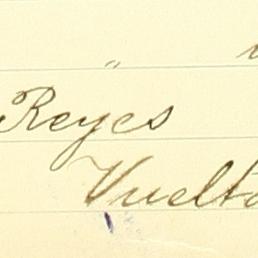 "
Reyes
Vuelta